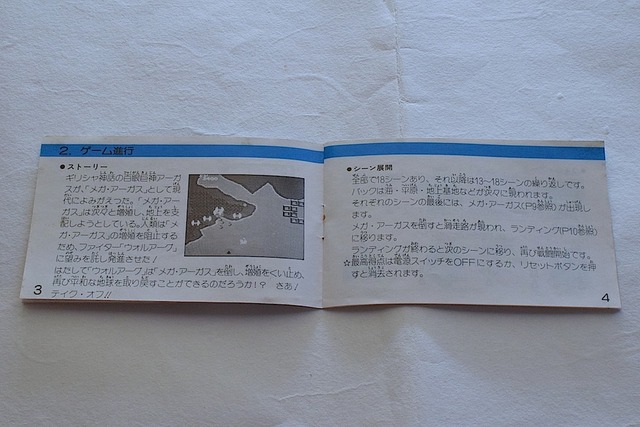 2. ゲーム進行
●ストーリー
ギリシャ神話の百眼巨神アーガ
スが、「メガ・アーガス」として現
代によみがえった。「メガ・アー
ガス」は次々と増殖し、地上を支
配しようとしている。人類は「メ
ガ・アーガス」の増殖を阻止する
ため、ファイター「ウォルアーグ」
に望みを託し発進させた!
はたして「ウォルアーグ」は「メガ・アーガス」を倒し、増殖をくい止め、
再び平和な地球を取り戻すことができるのだろうか!? さあ!
テイク・オフ!!
3
●シーン展開
全部で18シーンあり、それ以降は13~18シーンの繰り返しです。
バックは岩・平原・地上基地などが次々に現われます。
それぞれのシーンの最後には、メガ・アーガス(P9参照)が出現し
ます。
メガ・アーガスを倒すと滑走路が現われ、ランディング(P10参照)
に移ります。
ランディングが終わると次のシーンに移り、再び戦闘開始です。
☆最高得点は電源スイッチをOFFにするか、リセットボタンを押
すと消去されます。
4